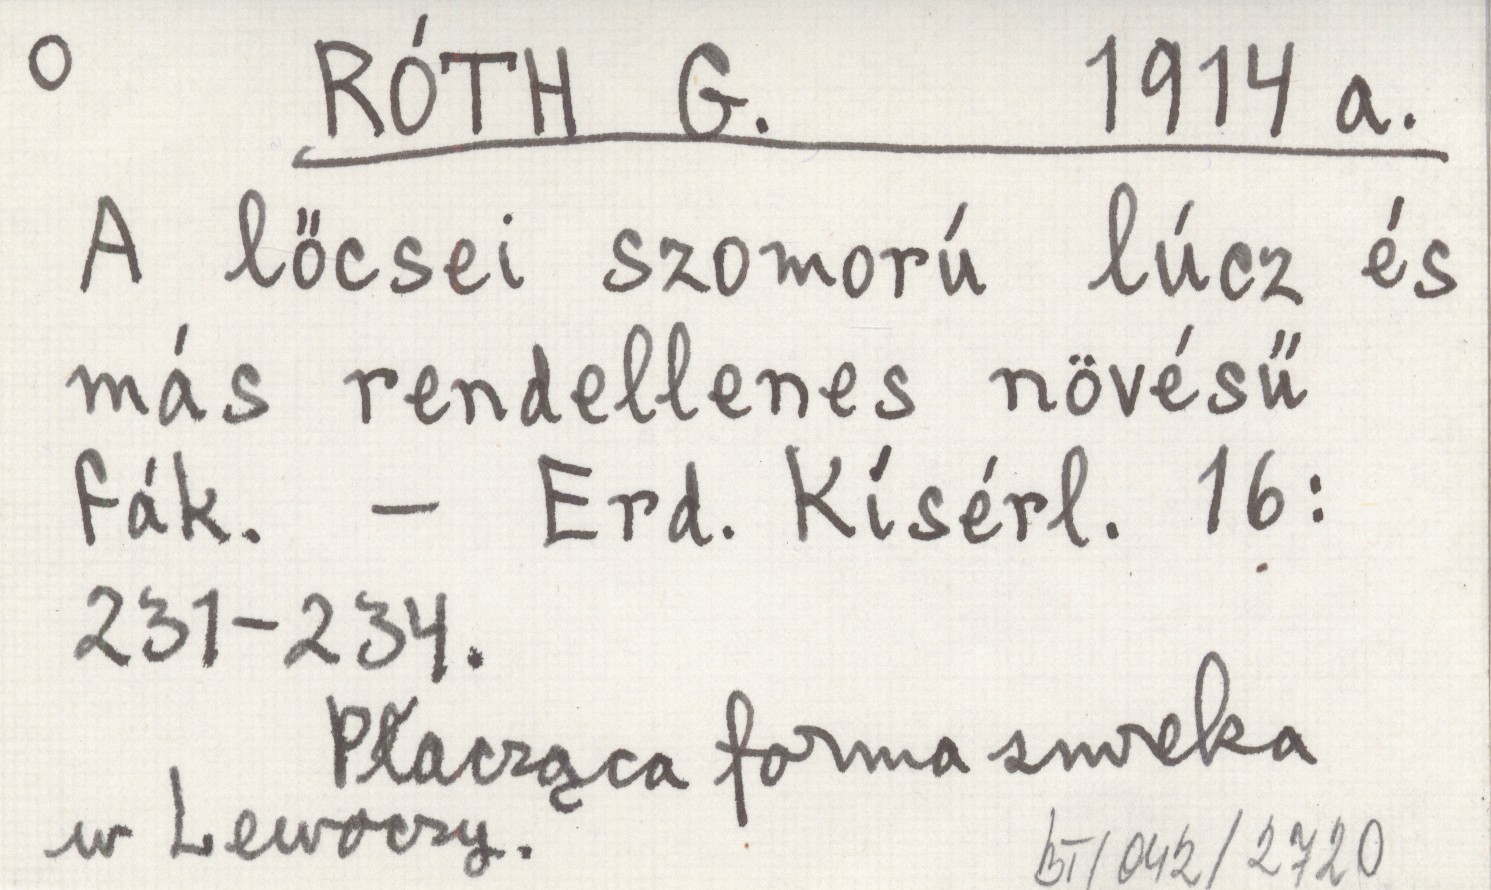 o RÓTH G. 1914 a.
A lőcsei szomorú lúcz és
más rendellenes növésű
fák. – Erd. Kísérl. 16:
231-234.
Płacząca forma smreka
w Lewoczy.
bT/042/2720